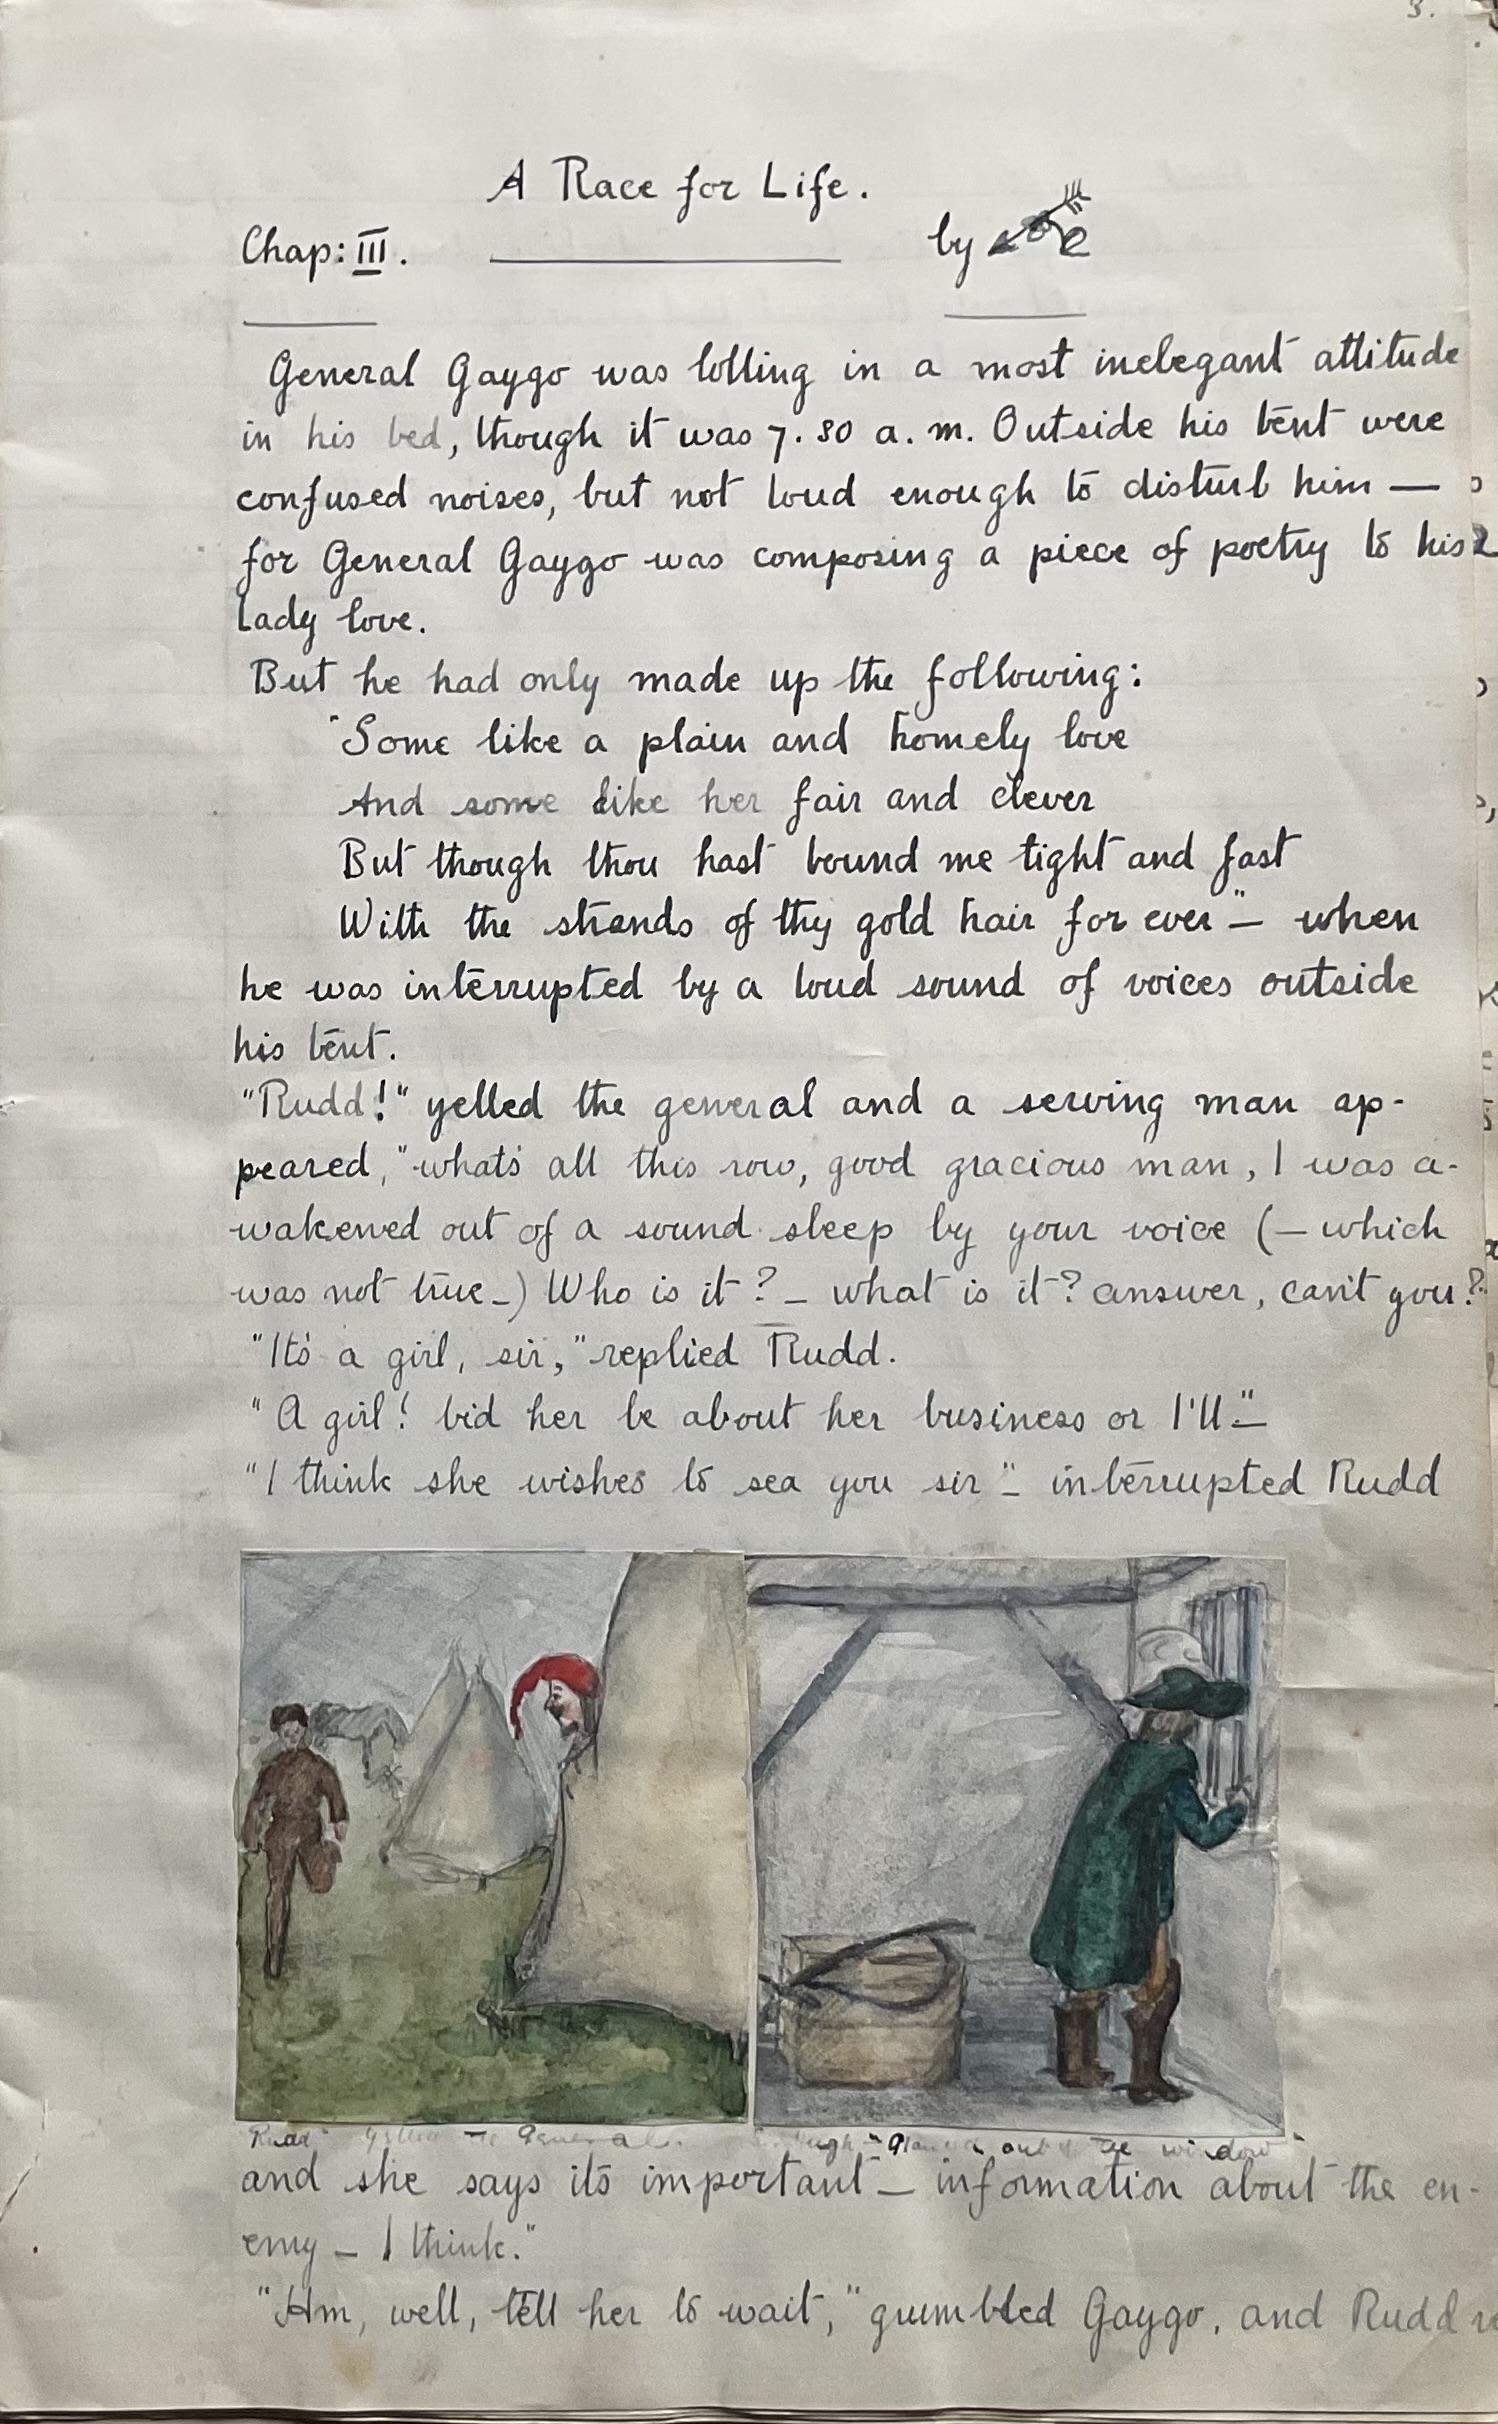 3.
A Race for Life.
Chap: III.
by
General Gaygo was lolling in a most inelegant attitude
in his bed, though it was 7.30 a.m. Outside his tent were
confused noises, but not loud enough to disturb him —
for General Gaygo was composing a piece of poetry to his
lady love.
But he had only made up the following:
"Some like a plain and homely love
And some like her fair and clever
But though thou hast bound me tight and fast
With the strands of thy gold hair for ever" — when
he was interrupted by a loud sound of voices outside
his tent.
"Rudd!" yelled the general and a serving man ap-
peared, "what's all this row, good gracious man, I was a-
wakened out of a sound sleep by your voice (— which
was not true —) Who is it? — what is it? answer, can't you?"
"It's a girl, sir," replied Rudd.
"A girl! bid her be about her business or I'll" —
"I think she wishes to sea you sir" — interrupted Rudd
"Rudd" yelled the General.
Hugh glanced out of the window
and she says it's important — information about the en-
emy — I think."
"Hm, well, tell her to wait," grumbled Gaygo, and Rudd